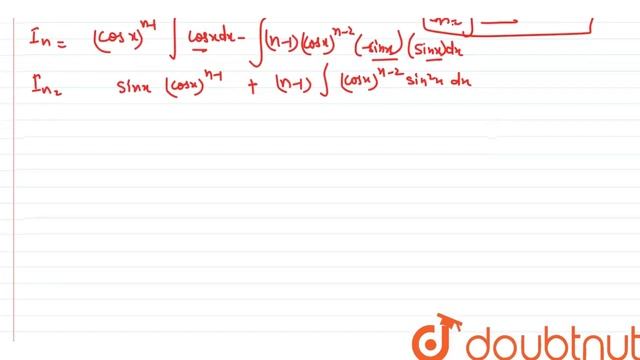 I_n = (cos x)^{n-1} ∫ cosx dx - ∫ (n-1) (cosx)^{n-2} (-sinx) (sinx) dx
I_{n2} sinx (cosx)^{n-1} + (n-1) ∫ (cosx)^{n-2} sin^2 x dx
doubtnut